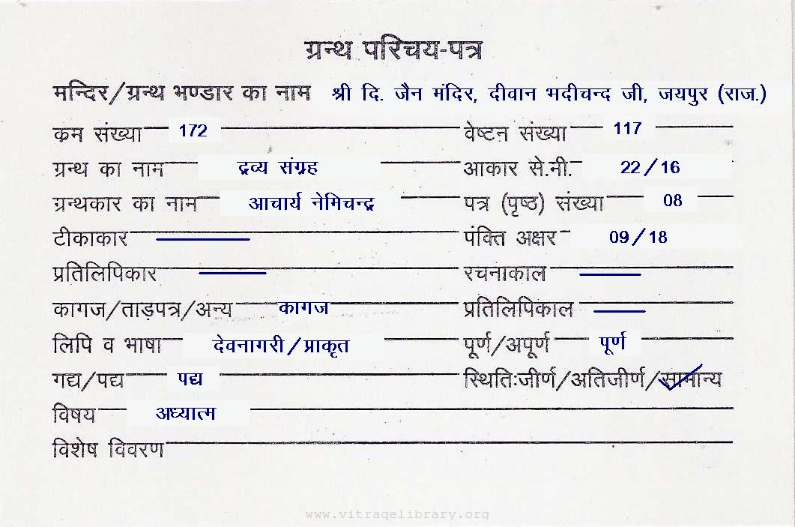 ग्रन्थ परिचय-पत्र
मन्दिर/ग्रन्थ भण्डार का नाम श्री दि. जैन मंदिर, दीवान भदीचन्द जी, जयपुर (राज.)
कम संख्या 172 वेष्टन संख्या 117
ग्रन्थ का नाम द्रव्य संग्रह आकार से.नी. 22/16
ग्रन्थकार का नाम आचार्य नेमिचन्द्र पत्र (पृष्ठ) संख्या 08
टीकाकार पंक्ति अक्षर 09/18
प्रतिलिपिकार रचनाकाल
कागज/ताड़पत्र/अन्य कागज प्रतिलिपिकाल
लिपि व भाषा देवनागरी/प्राकृत पूर्ण/अपूर्ण पूर्ण
गद्य/पद्य पद्य स्थितिःजीर्ण/अतिजीर्ण/सामान्य
विषय अध्यात्म
विशेष विवरण
www.vitragelibrary.org